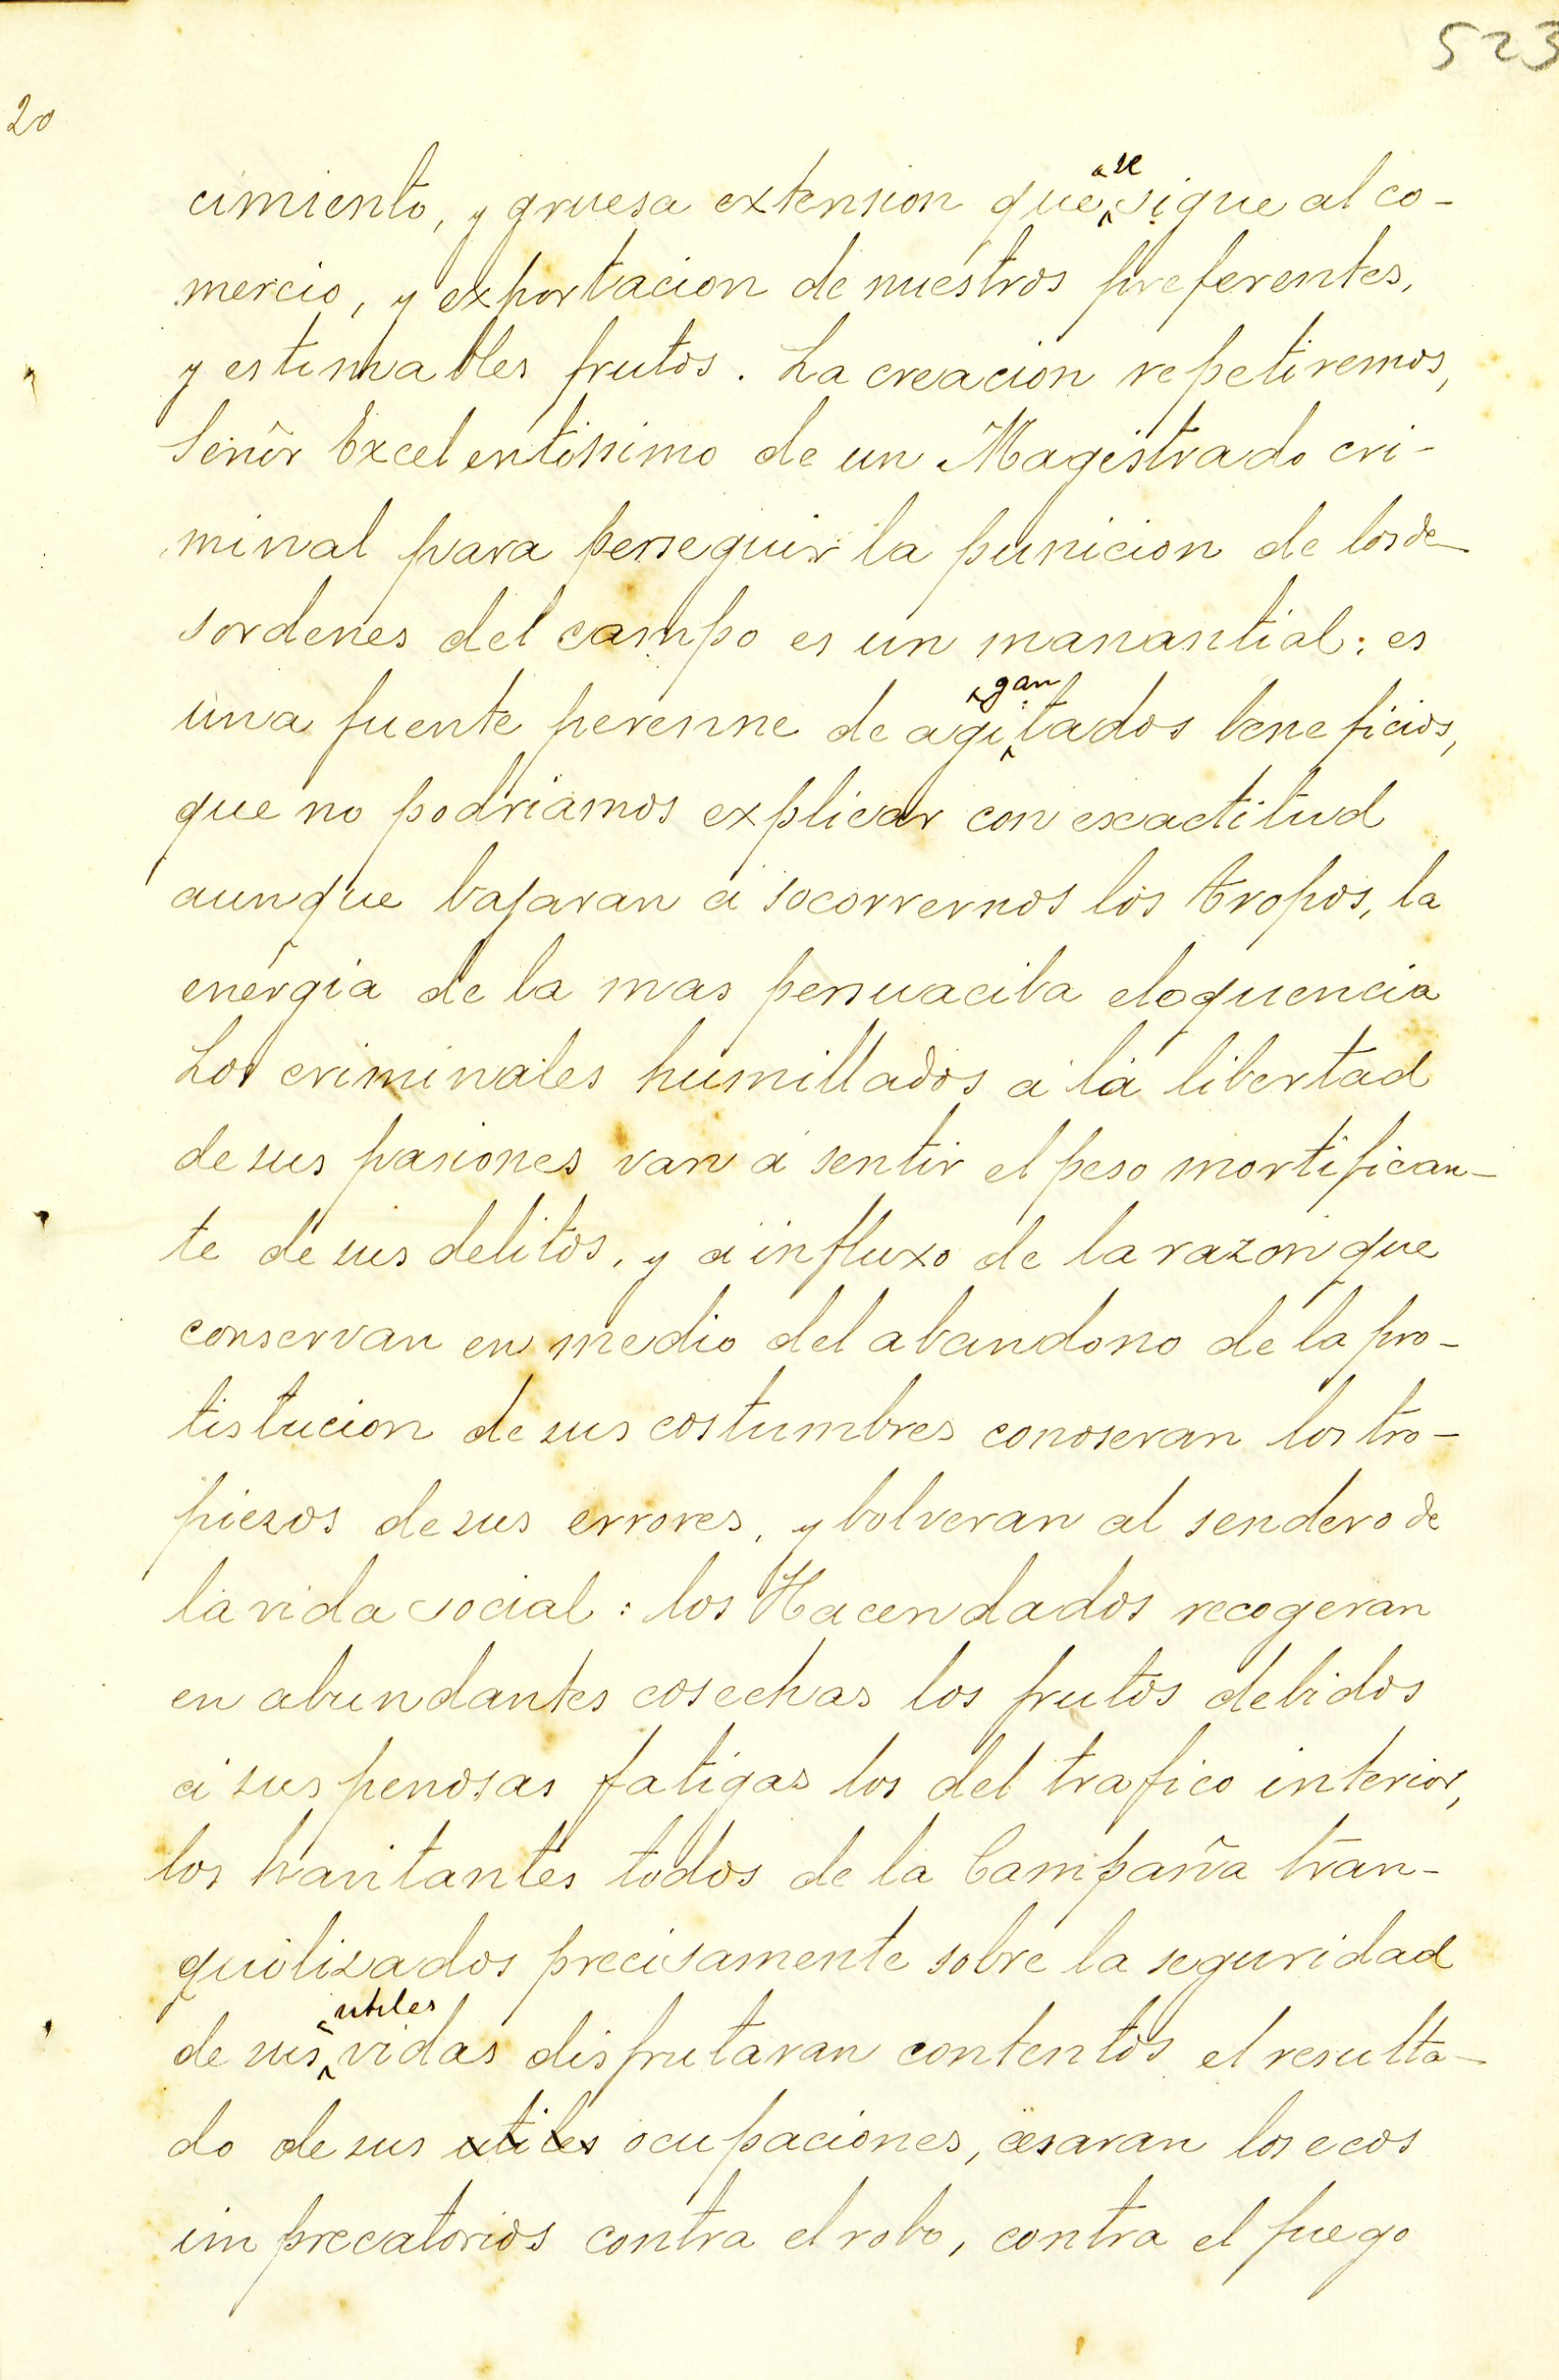 523
20
cimiento, y gruesa extension que se sigue al co-
mercio, y exportacion de nuestros preferentes,
y estimables frutos. La creacion repetiremos,
Señor Excelentissimo de un Magistrado cri-
minal para perseguir la punicion de los de-
sordenes del campo es un manantial: es
una fuente perenne de agigantados beneficios,
que no podriamos explicar con exactitud
aunque bajaran á socorrernos los tropos, la
energia de la mas persuaciba eloquencia
Los criminales humillados á la libertad
de sus pasiones van á sentir el peso mortifican-
te de sus delitos, y á influxo de la razon que
conservan en medio del abandono de la pro-
tistucion de sus costumbres conoseran los tro-
piezos de sus errores, y bolveran al sendero de
la vida social: los Hacendados recogeran
en abundantes cosechas los frutos debidos
á sus penosas fatigas los del trafico interior,
los havitantes todos de la Campaña tran-
quilizados precisamente sobre la seguridad
de sus utiles vidas disfrutaran contentos el resulta-
do de sus utiles ocupaciones, cesaran los ecos
imprecatorios contra el robo, contra el fuego